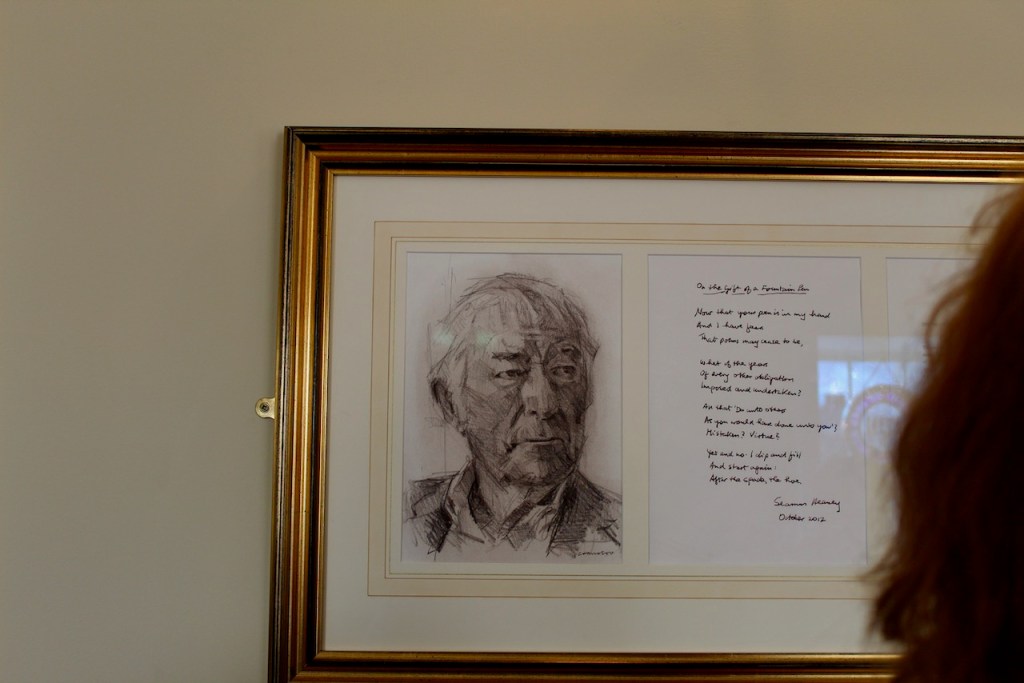 On the Gift of a Fountain Pen
Now that your pen is in my hand
And I have
That poems may cause to be,
What of the years
Of every other obligation
Imposed and undertaken?
And that 'Do unto others
As you would have done unto you'?
Mistaken? Virtue?
Yes and no. I dip and fill
And start again:
After the spade, the hoe.
Seamus Heaney
October 2012